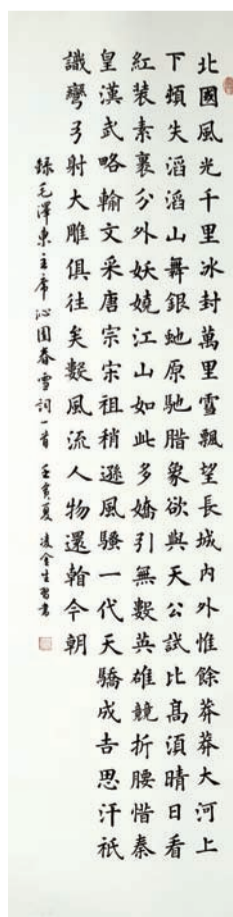 北國風光千里冰封萬里雪飄望長城內外惟餘莽莽大河上
下頓失滔滔山舞銀虵原馳腊象欲與天公試比高須晴日看
紅裝素裹分外妖嬈江山如此多嬌引無數英雄競折腰惜秦
皇漢武略輸文采唐宗宋祖稍遜風騷一代天驕成吉思汗祇
識彎弓射大雕俱往矣數風流人物還看今朝
錄毛澤東主席沁園春雪詞一首 壬寅夏